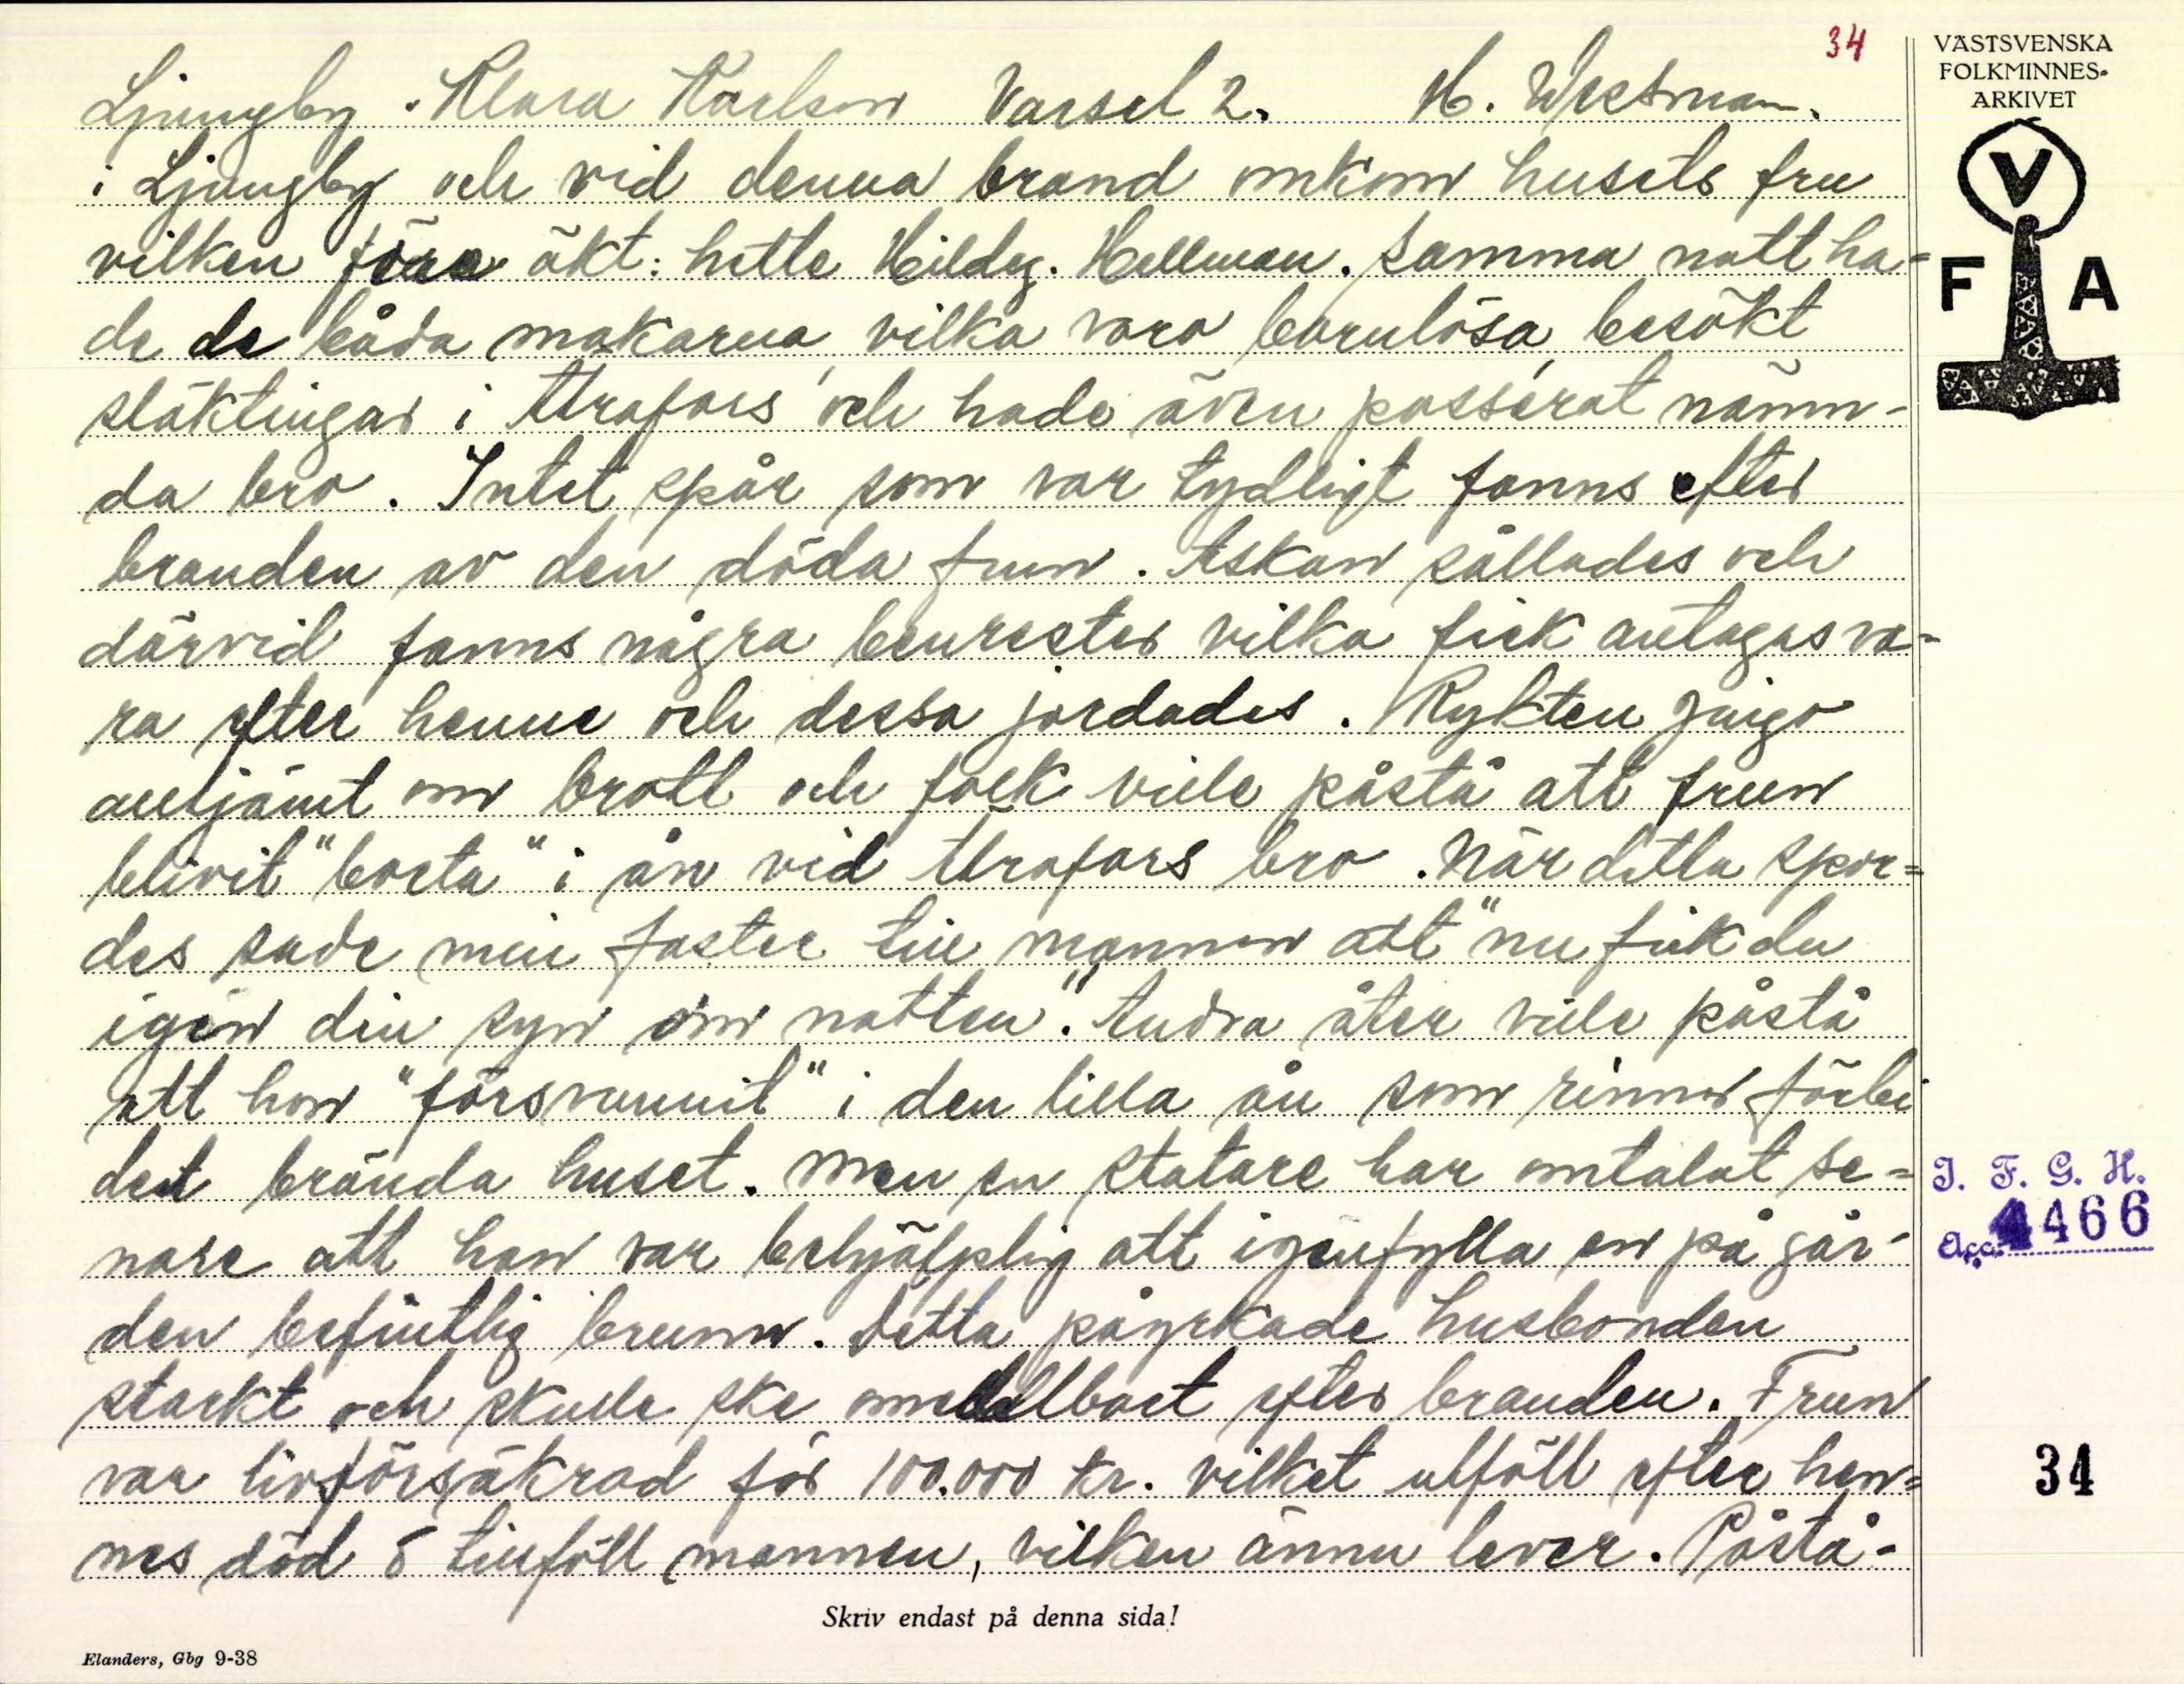 34
Ljungby. Klara Karlson Varsel 2. H. Westman.
i Ljungby och vid denna brand omkom husets fru
vilken före äkt: hette Hildeg. Hellman. Samma natt ha-
de de båda makarna, vilka voro barnlösa, besökt
släktingar i Ätrafors och hade även passerat nämn-
da bro. Intet spår som var tydligt fanns efter
branden av den döda frun. Askan sållades och
därvid fanns några benrester vilka fick antagas va-
ra efter henne och dessa jordades. Rykten gingo
alltjämt om brott och folk ville påstå att frun
blivit "borta" i ån vid Ätrafors bro. När detta spor=
des sade min faster till mannen att "nu fick du
igen din syn om natten". Andra åter ville påstå
att hon "försvunnit" i den lilla ån som rinner förbi
det brända huset. Men en statare har omtalat se=
nare att han var behjälplig att igenfylla en på går-
den befintlig brunn. Detta påyrkade husbonden
starkt och skulle ske omedelbart efter branden. Frun
var livförsäkrad för 100.000 kr. vilket utföll efter hen=
nes död & tillföll mannen, vilken ännu lever. Påstå-
Skriv endast på denna sida!
Elanders, Gbg 9-38
VÄSTSVENSKA
FOLKMINNES-
ARKIVET
V
F A
I. F. G. H.
Acc. 4466
34